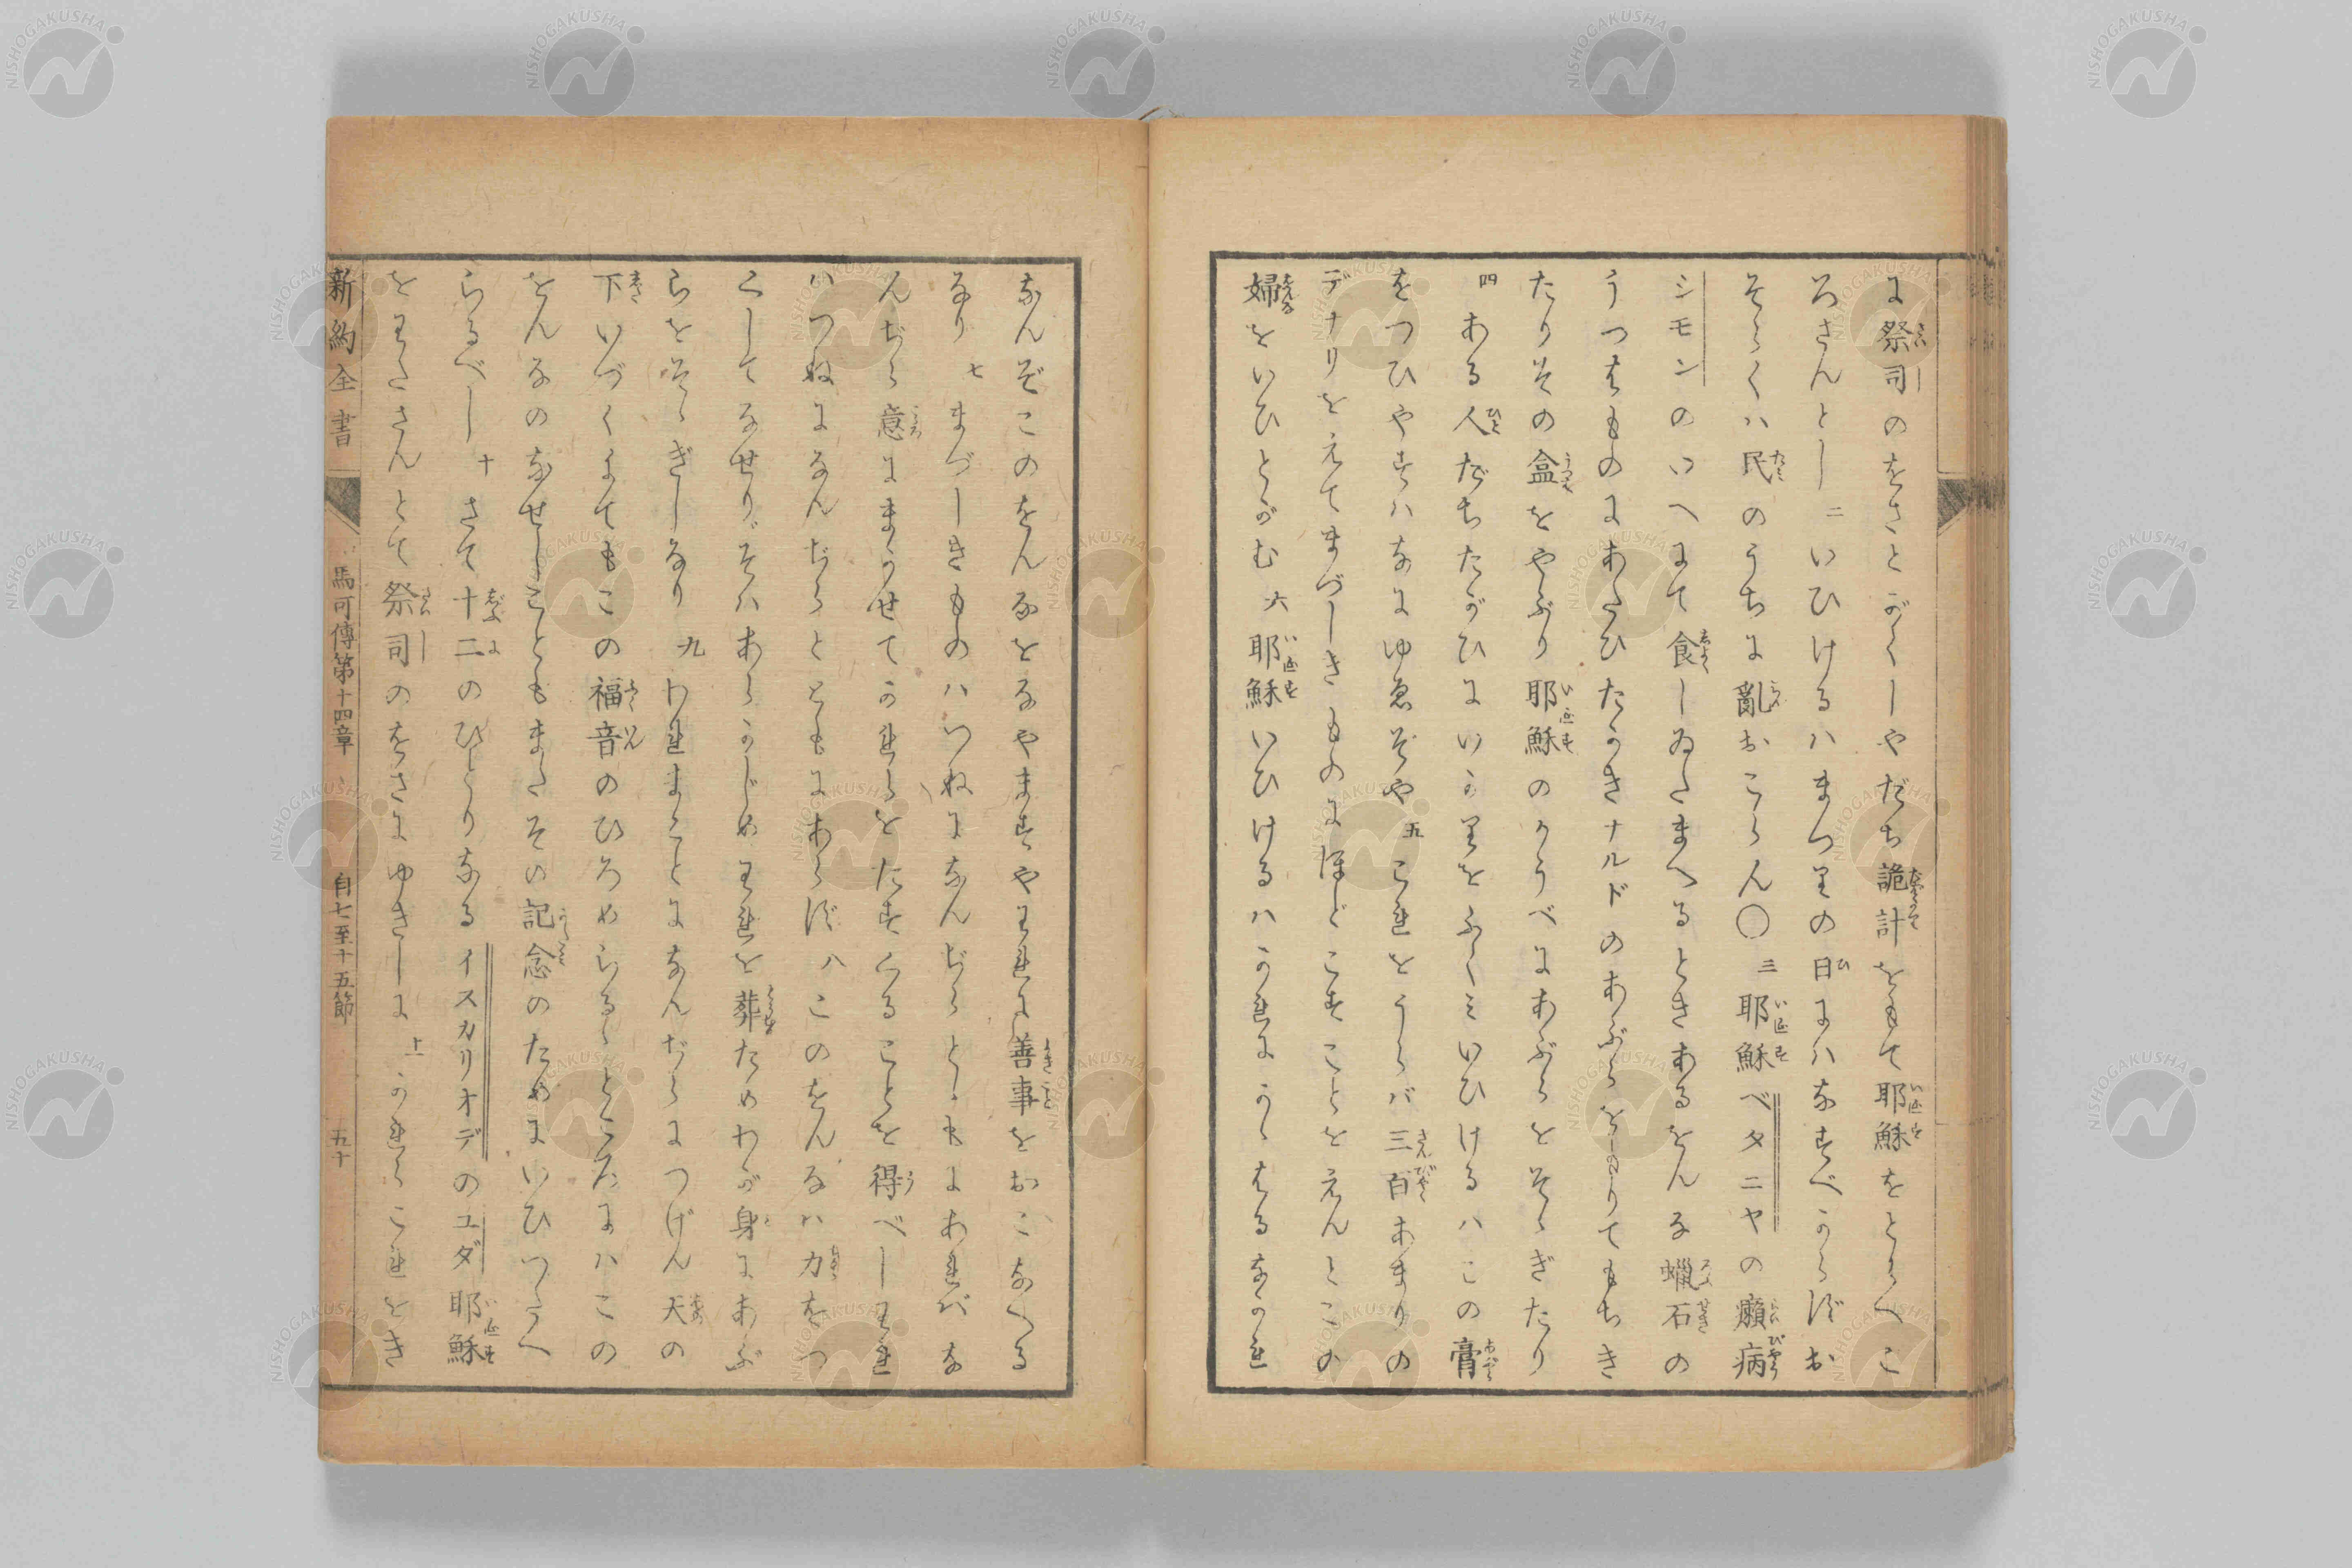 に祭司のをさとがくしやだち詭計をもて耶穌をとらへこ
ろさんとし 二 いひけるハまつりの日にハなすべからずお
そらくハ民のうちに亂おこらん〇 三 耶穌ベタニヤの癩病
シモンのいへにて食しゐたまへるときあるをんな蠟石の
うつはものにあたひたかきナルドのあぶらを
たりその盒をやぶり耶穌のかうべにあぶらをそゝぎたり
四 ある人だちたがひにいかりをふくミいひけるハこの膏
をつひやすハなにゆゑぞや 五 これをうらバ三百あまりの
デナリをえてまづしきものにほどこすことをえんとこの
婦をいひとがむ 六 耶穌いひけるハかれにかゝはるなかれ
なんぞこのをんなをなやますやわれに善事をおこなへる
なり 七 まづしきものハつねになんぢらとゝもにあれバな
んぢら意にまかせてかれらをたすくることを得べしわれ
ハつねになんぢらとともにあらず 八 このをんなハ力をつ
くしてなせりそハあらかじめわれを葬ためわが身にあぶ
らをそゝぎしなり 九 われまことになんぢらにつげん天の
下いづくにてもこの福音のひろめらるゝところにハこの
をんなのなせしこともまたその記念のためにいひつたへ
らるべし 十 さて十二のひとりなるイスカリオデのユダ耶穌
をわたさんとて祭司のをさにゆきしに 十一 かれらこれをき
新約全書 馬可傳第十四章 自七至十五節 五十